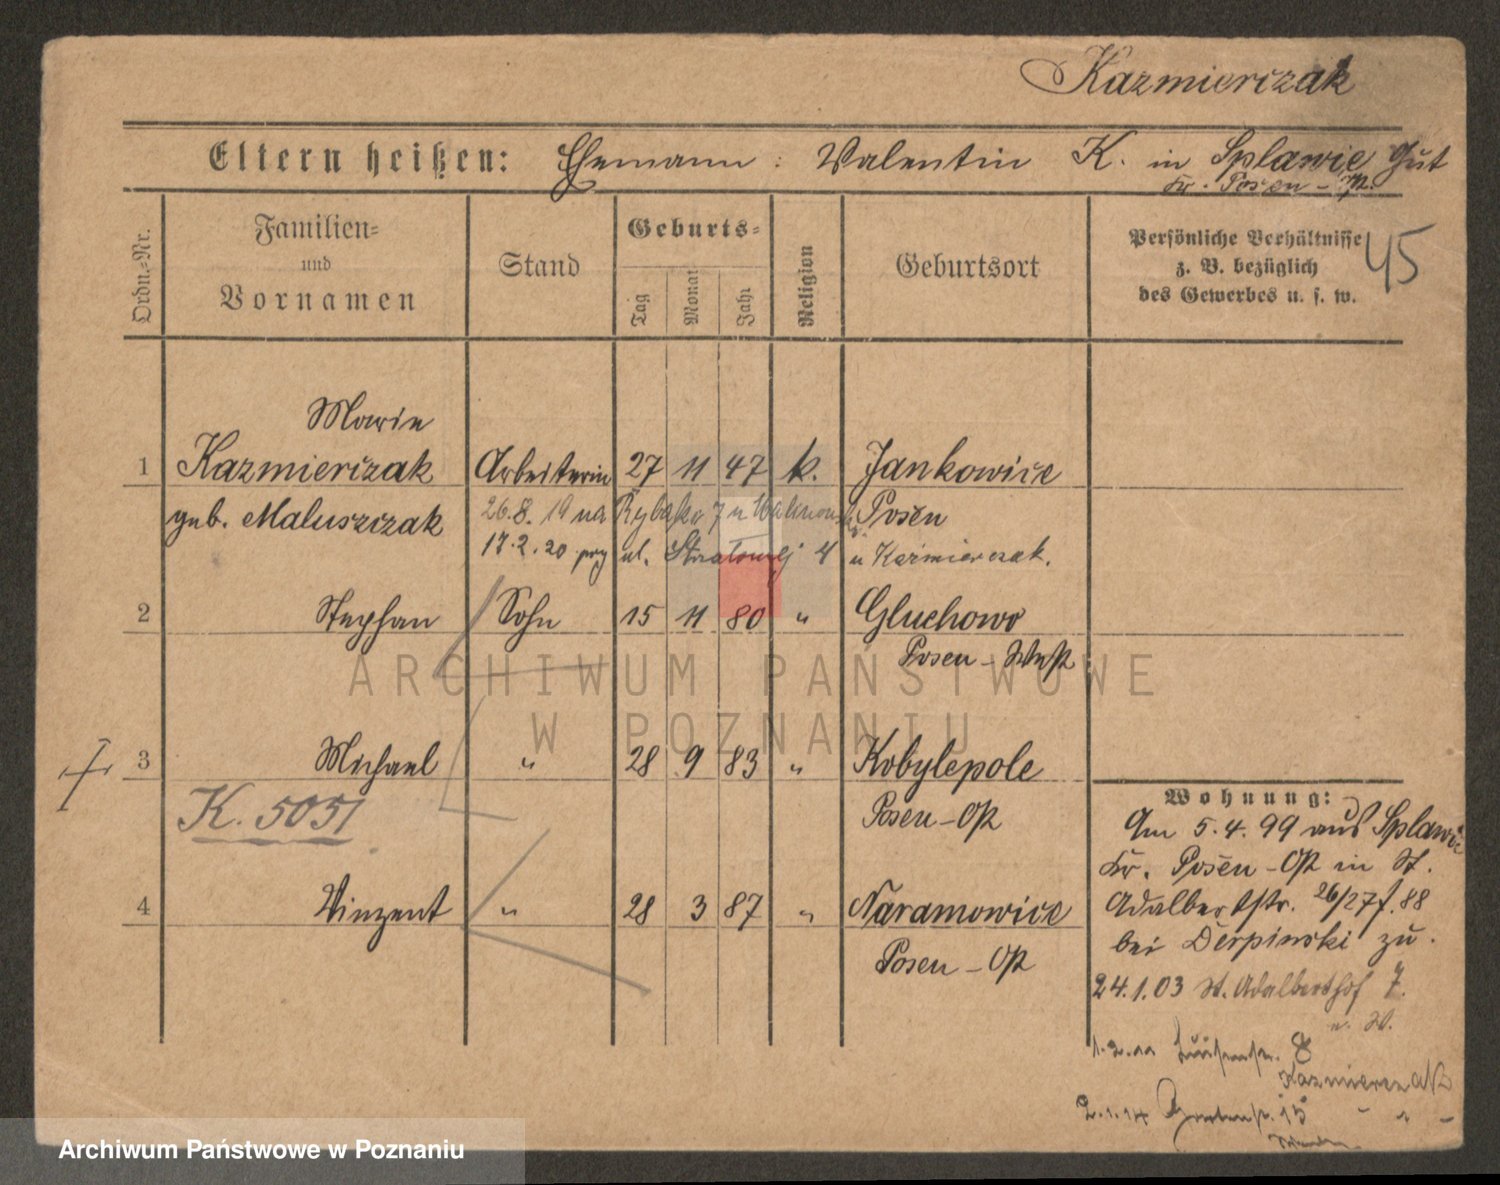 Kazmierczak
Eltern heißen: Ehemann: Valentin K. in Splawie Gut
Kr. Posen - W.
Ordn.-Nr.
Familien-
und
Vornamen
Stand
Geburts-
Tag
Monat
Jahr
Religion
Geburtsort
Persönliche Verhältnisse
z. B. bezüglich
des Gewerbes u. s. w.
45
Marie
1 Kazmierczak Arbeiterin 27 11 47 k. Jankowice
geb. Maluszczak 26.8.19 na Rybaki 7 u Posen
17.2.20 przy ul. 4 u Kaźmierczak.
2 Stephan Sohn 15 11 80 " Gluchowo
Posen - West
3 Michael " 28 9 83 " Kobylepole
K. 5051 Posen - Ost
4 Vinzent " 28 3 87 " Naramowice
Posen - Ost
Wohnung:
Am 5.4.99 aus Splawie
Kr. Posen - Ost in St.
Adalbertstr. 26/27 f. 88
bei Derpinski zu.
24.1.03 St. Adalberthof 7.
u. W.
1.2.11 8
Kazmierczak
2.1.14 Grabenstr. 15 - " -
ARCHIWUM PAŃSTWOWE
W POZNANIU
Archiwum Państwowe w Poznaniu